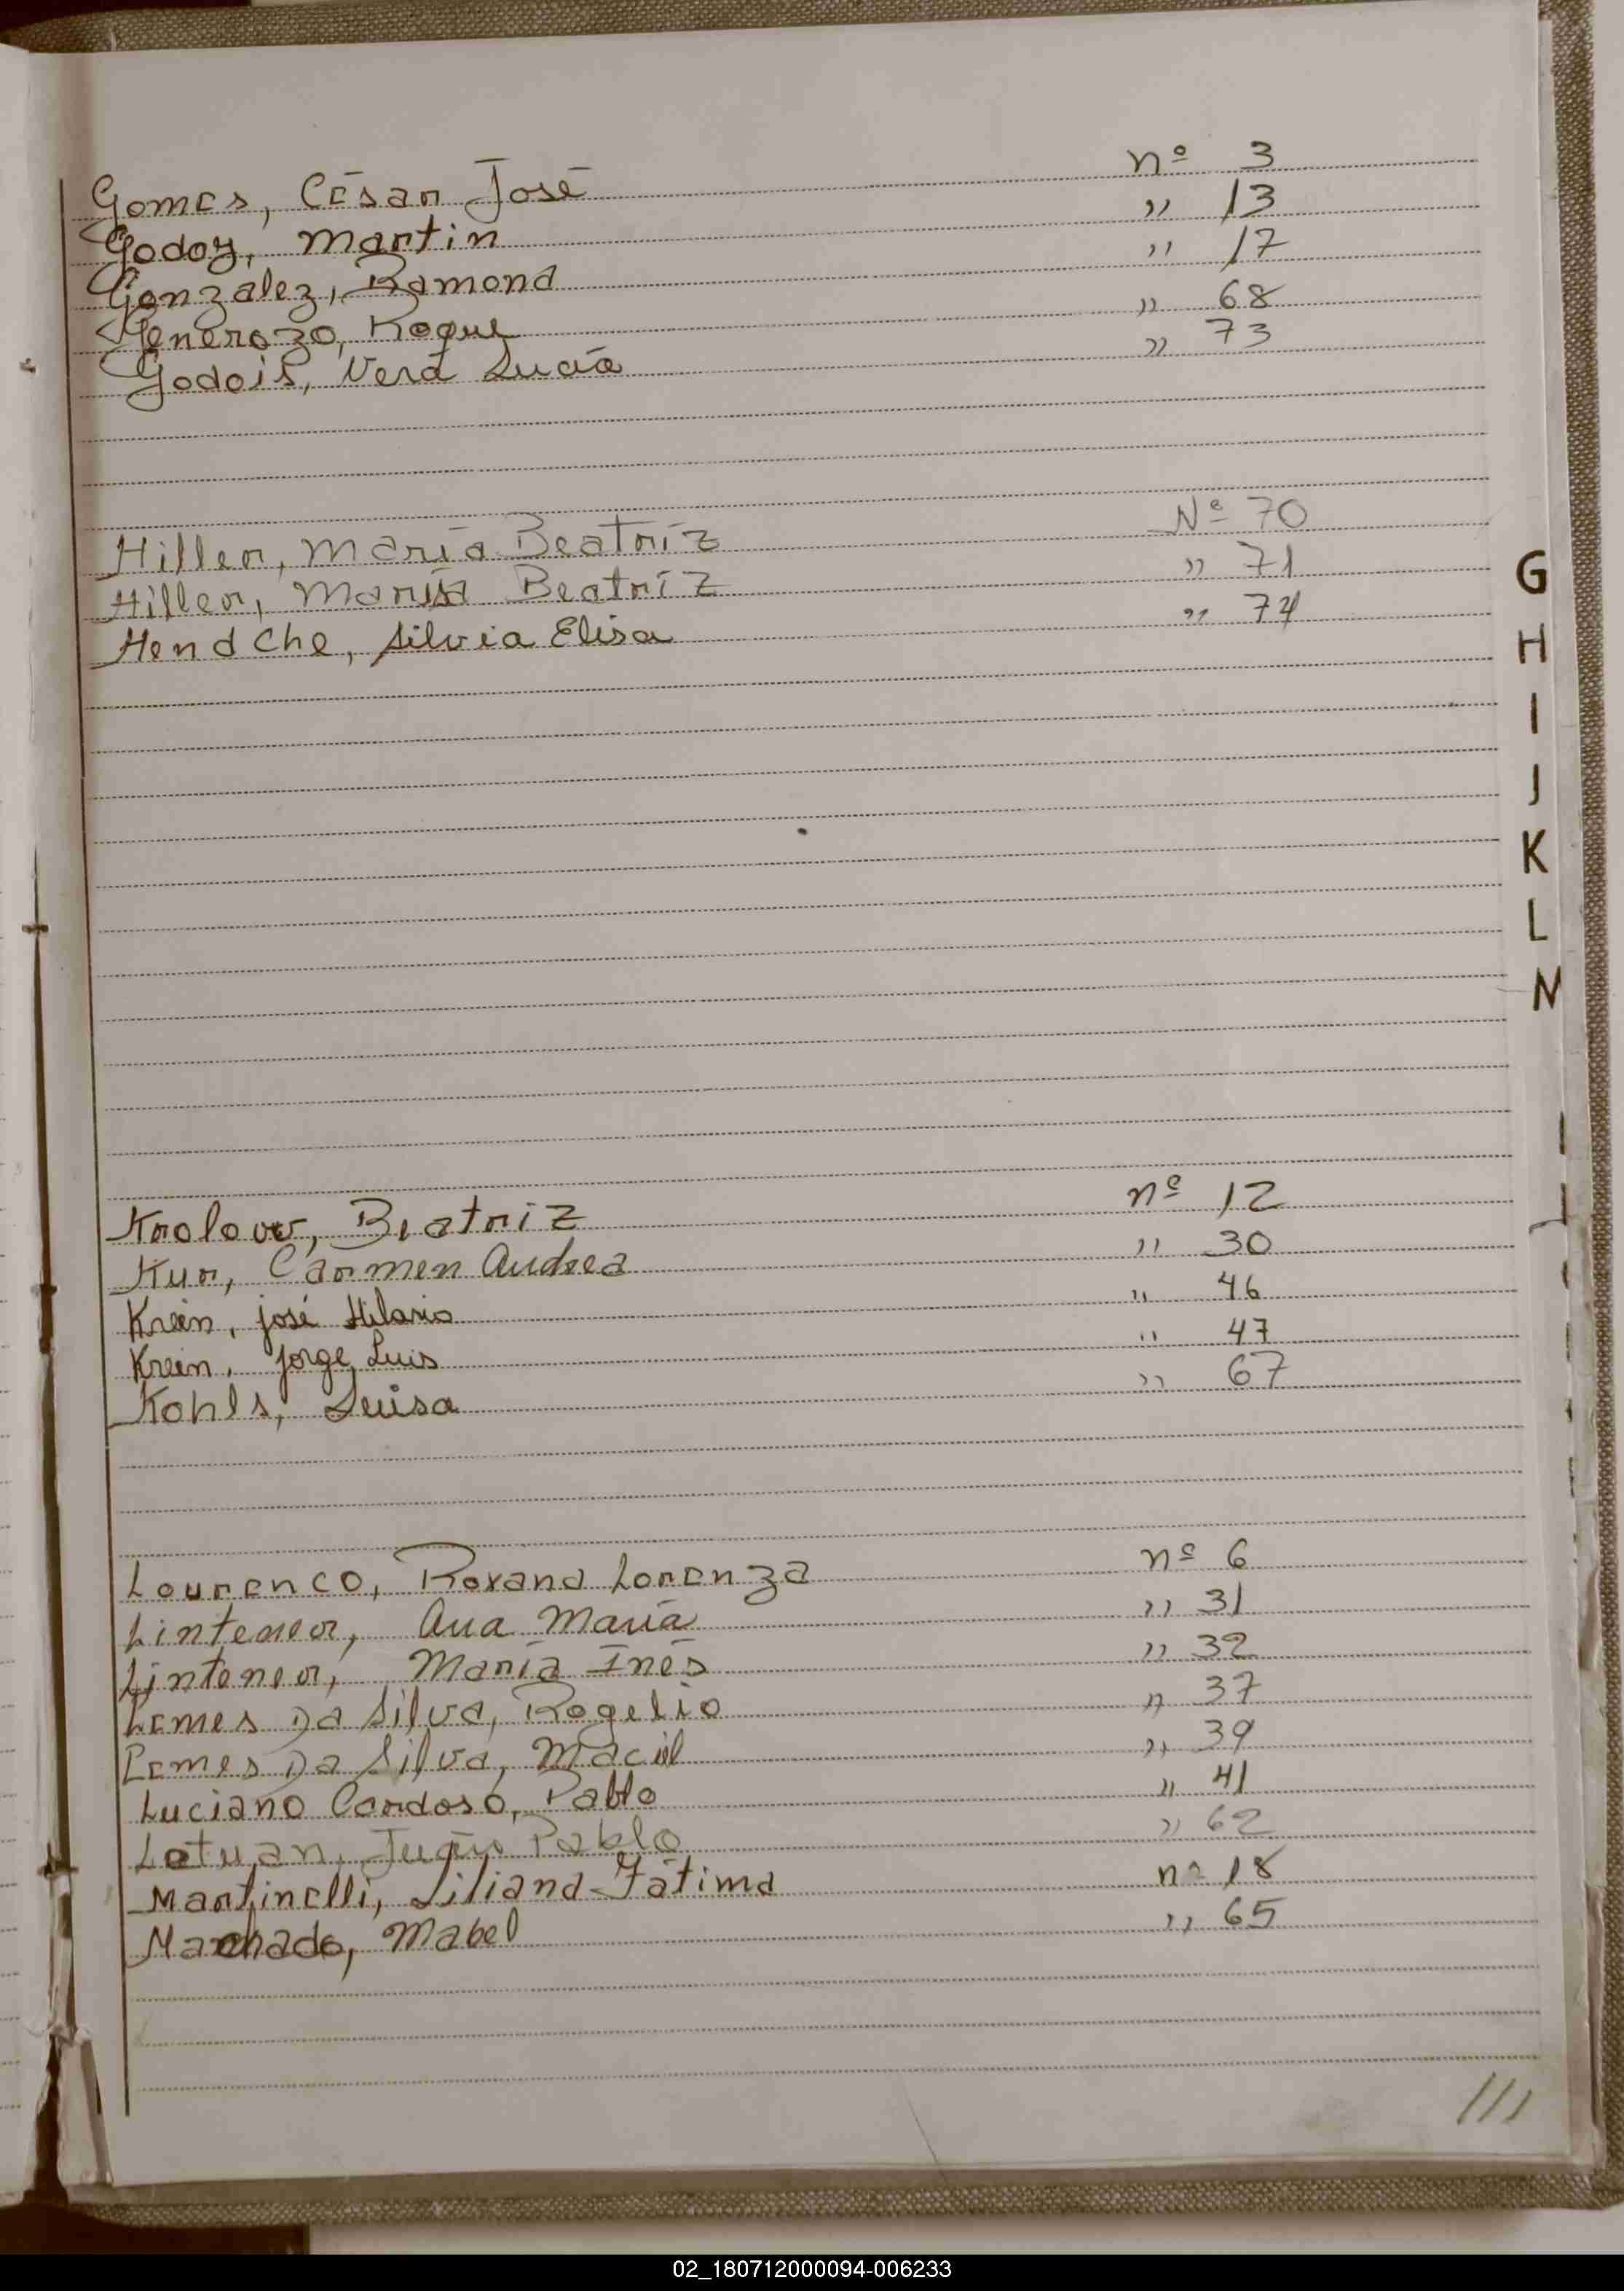 Gomes, César José nº 3
Godoy, Martin " 13
Gonzalez, Ramona " 17
Generozo, Roque " 68
Godois, Vera Lucía " 73
Hiller, María Beatríz Nº 70
Hiller, María Beatríz " 71
Hendche, Silvia Elisa " 74
G
H
I
J
K
L
N
Krolow, Beatriz nº 12
Kur, Carmen Andrea " 30
Krein, josé Hilario " 46
Krein, Jorge Luis " 47
Kohls, Luisa " 67
Lourenco, Roxana Lorenza nº 6
Lintener, Ana María " 31
Lintener, María Inés " 32
Lemes Da Silva, Rogelio " 37
Lemes Da Silva, Maciel " 39
Luciano Cardoso, Pablo " 41
Pablo " 62
Martinelli, Liliana Fátima nº 18
Machado, Mabel " 65
///
02_180712000094-006233